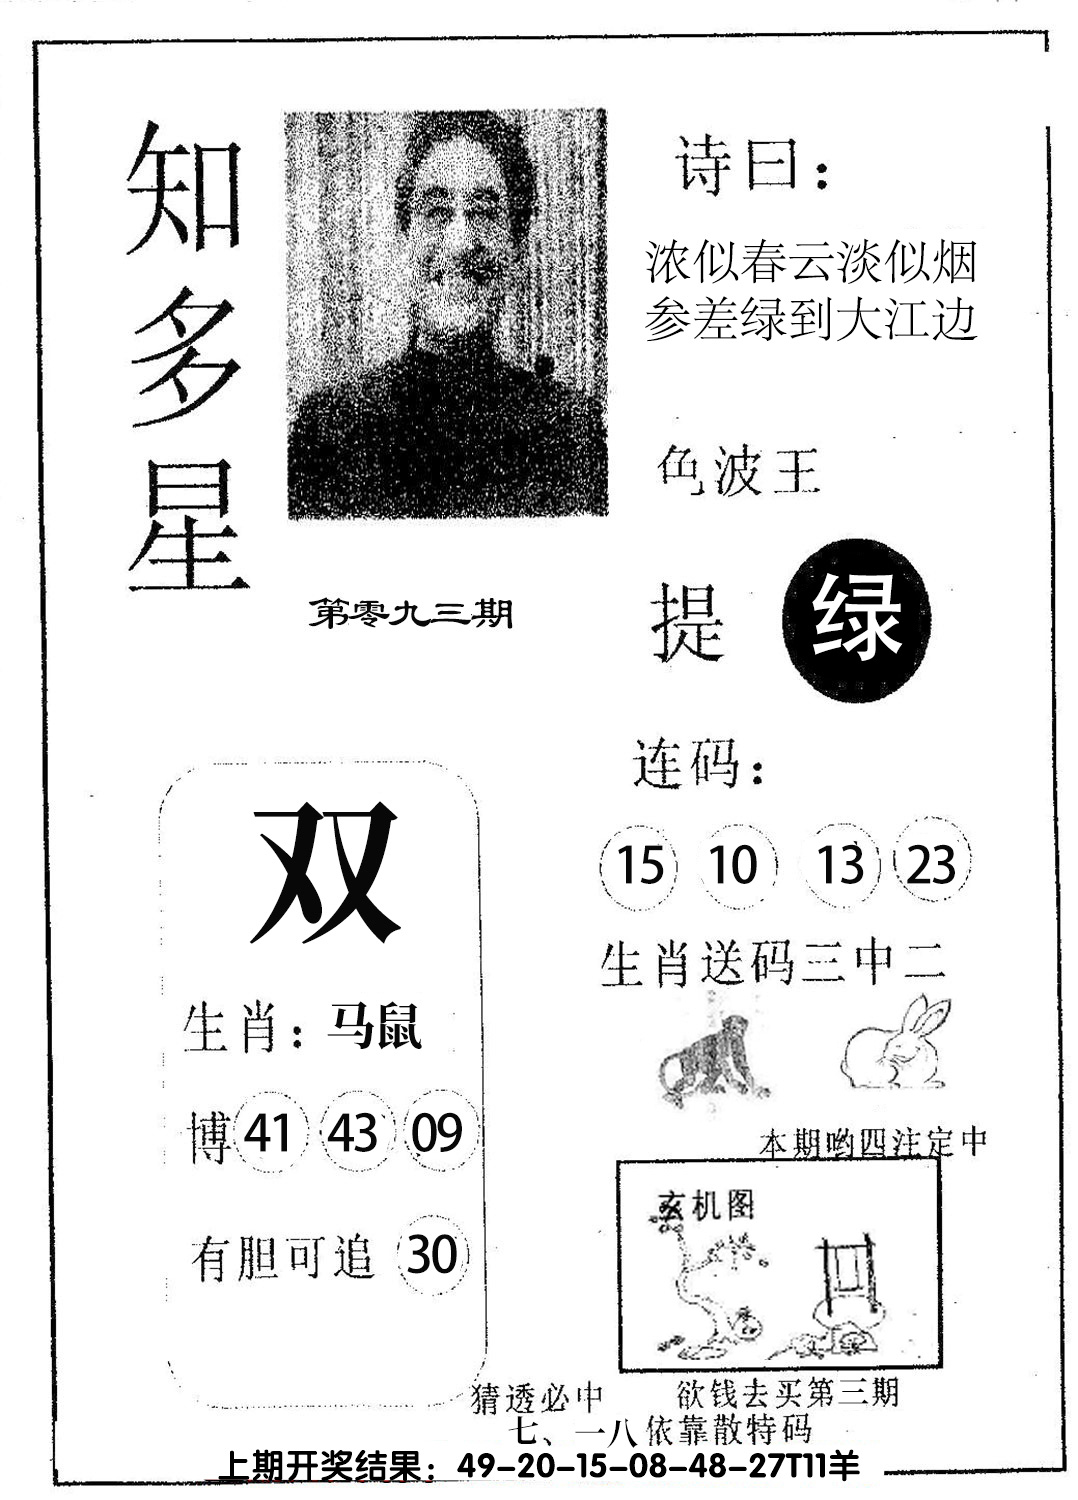 知多星
诗曰：
浓似春云淡似烟
参差绿到大江边
色波王
提 绿
第零九三期
连码：
15 10 13 23
生肖送码三中二
双
生肖：马鼠
博 41 43 09
有胆可追 30
本期哟四注定中
玄机图
猜透必中 欲钱去买第三期
七、一八依靠散特码
上期开奖结果：49-20-15-08-48-27T11羊